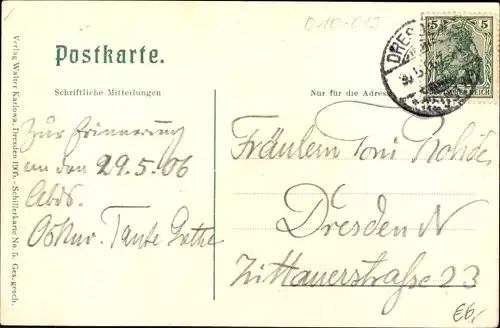 010-013
5
DRES
Postkarte.
Schriftliche Mitteilungen
Nur für die Adresse
Zur Erinnerung
an den 29.5.06
Abds.
Oskar. Tante Grethe
Fräulein Toni Rohde,
Dresden N
Zittauerstraße 23
E6,-
Verlag Walter Karlowa, Dresden 1905. - Schillerkarte No 5. Ges. gesch.